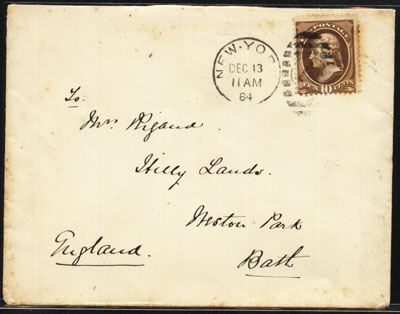 NEW-YOR
DEC 13
11 AM
84
POSTAGE
10
To.
Mrs Rigaud.
Hilly Lands.
Weston Park
Bath
England.